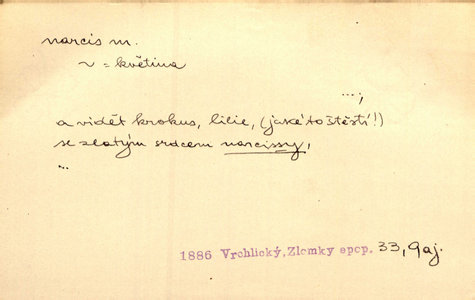 narcis m.
~ = květina
...;
a vidět krokus, lilie, (jaké to štěstí!)
se zlatým srdcem narcissy,
...
1886 Vrchlický, Zlomky epop. 33, 9aj.